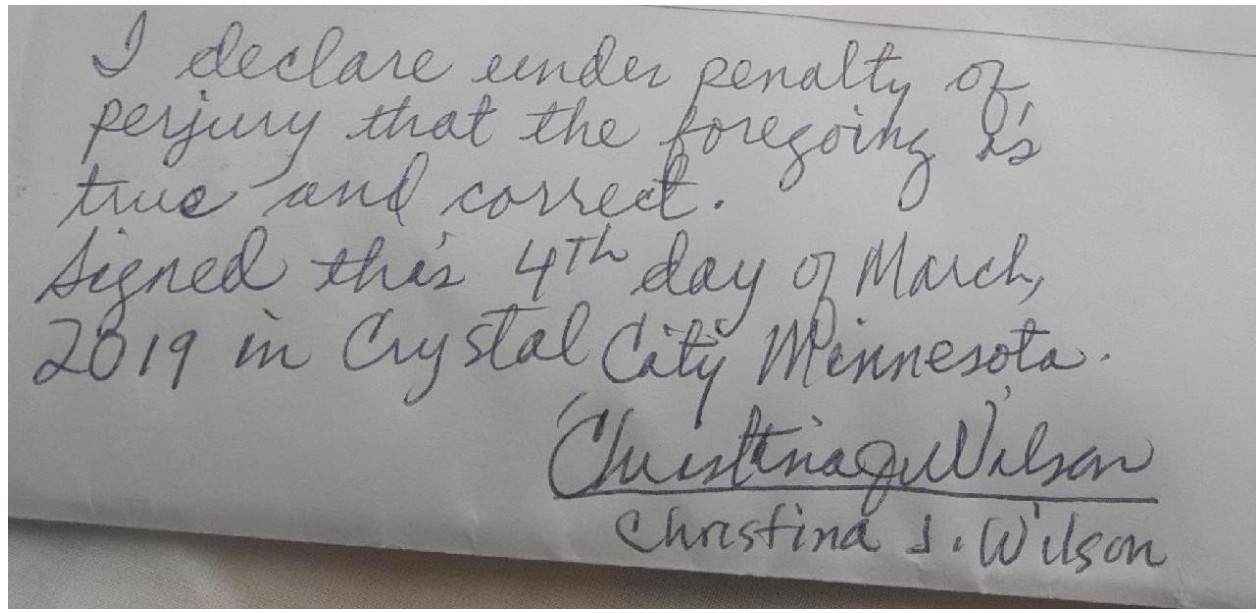 I declare under penalty of
perjury that the foregoing is
true and correct.
Signed this 4th day of March,
2019 in Crystal City Minnesota.
Christina J Wilson
Christina J. Wilson